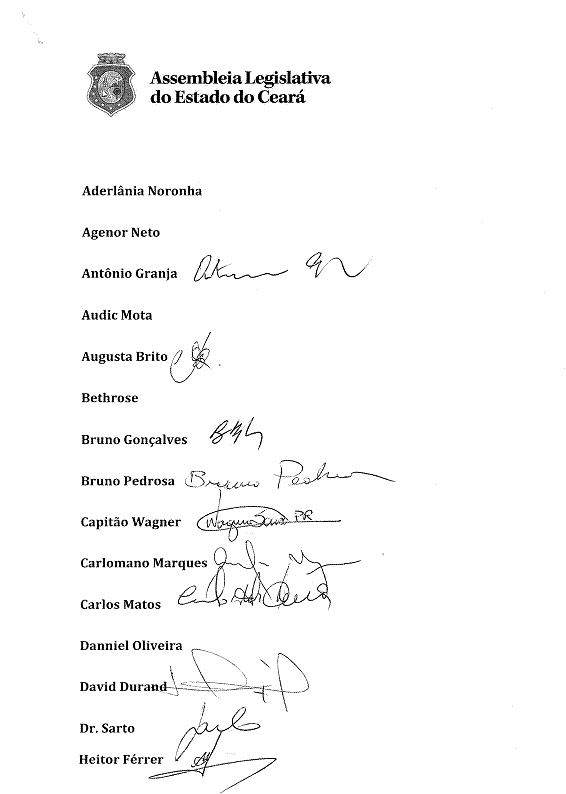 Assembleia Legislativa
do Estado do Ceará
Aderlânia Noronha
Agenor Neto
Antônio Granja
Audic Mota
Augusta Brito
Bethrose
Bruno Gonçalves
Bruno Pedrosa Bruno Pedrosa
Capitão Wagner Wagner Sousa PR
Carlomano Marques
Carlos Matos
Danniel Oliveira
David Durand
Dr. Sarto
Heitor Férrer